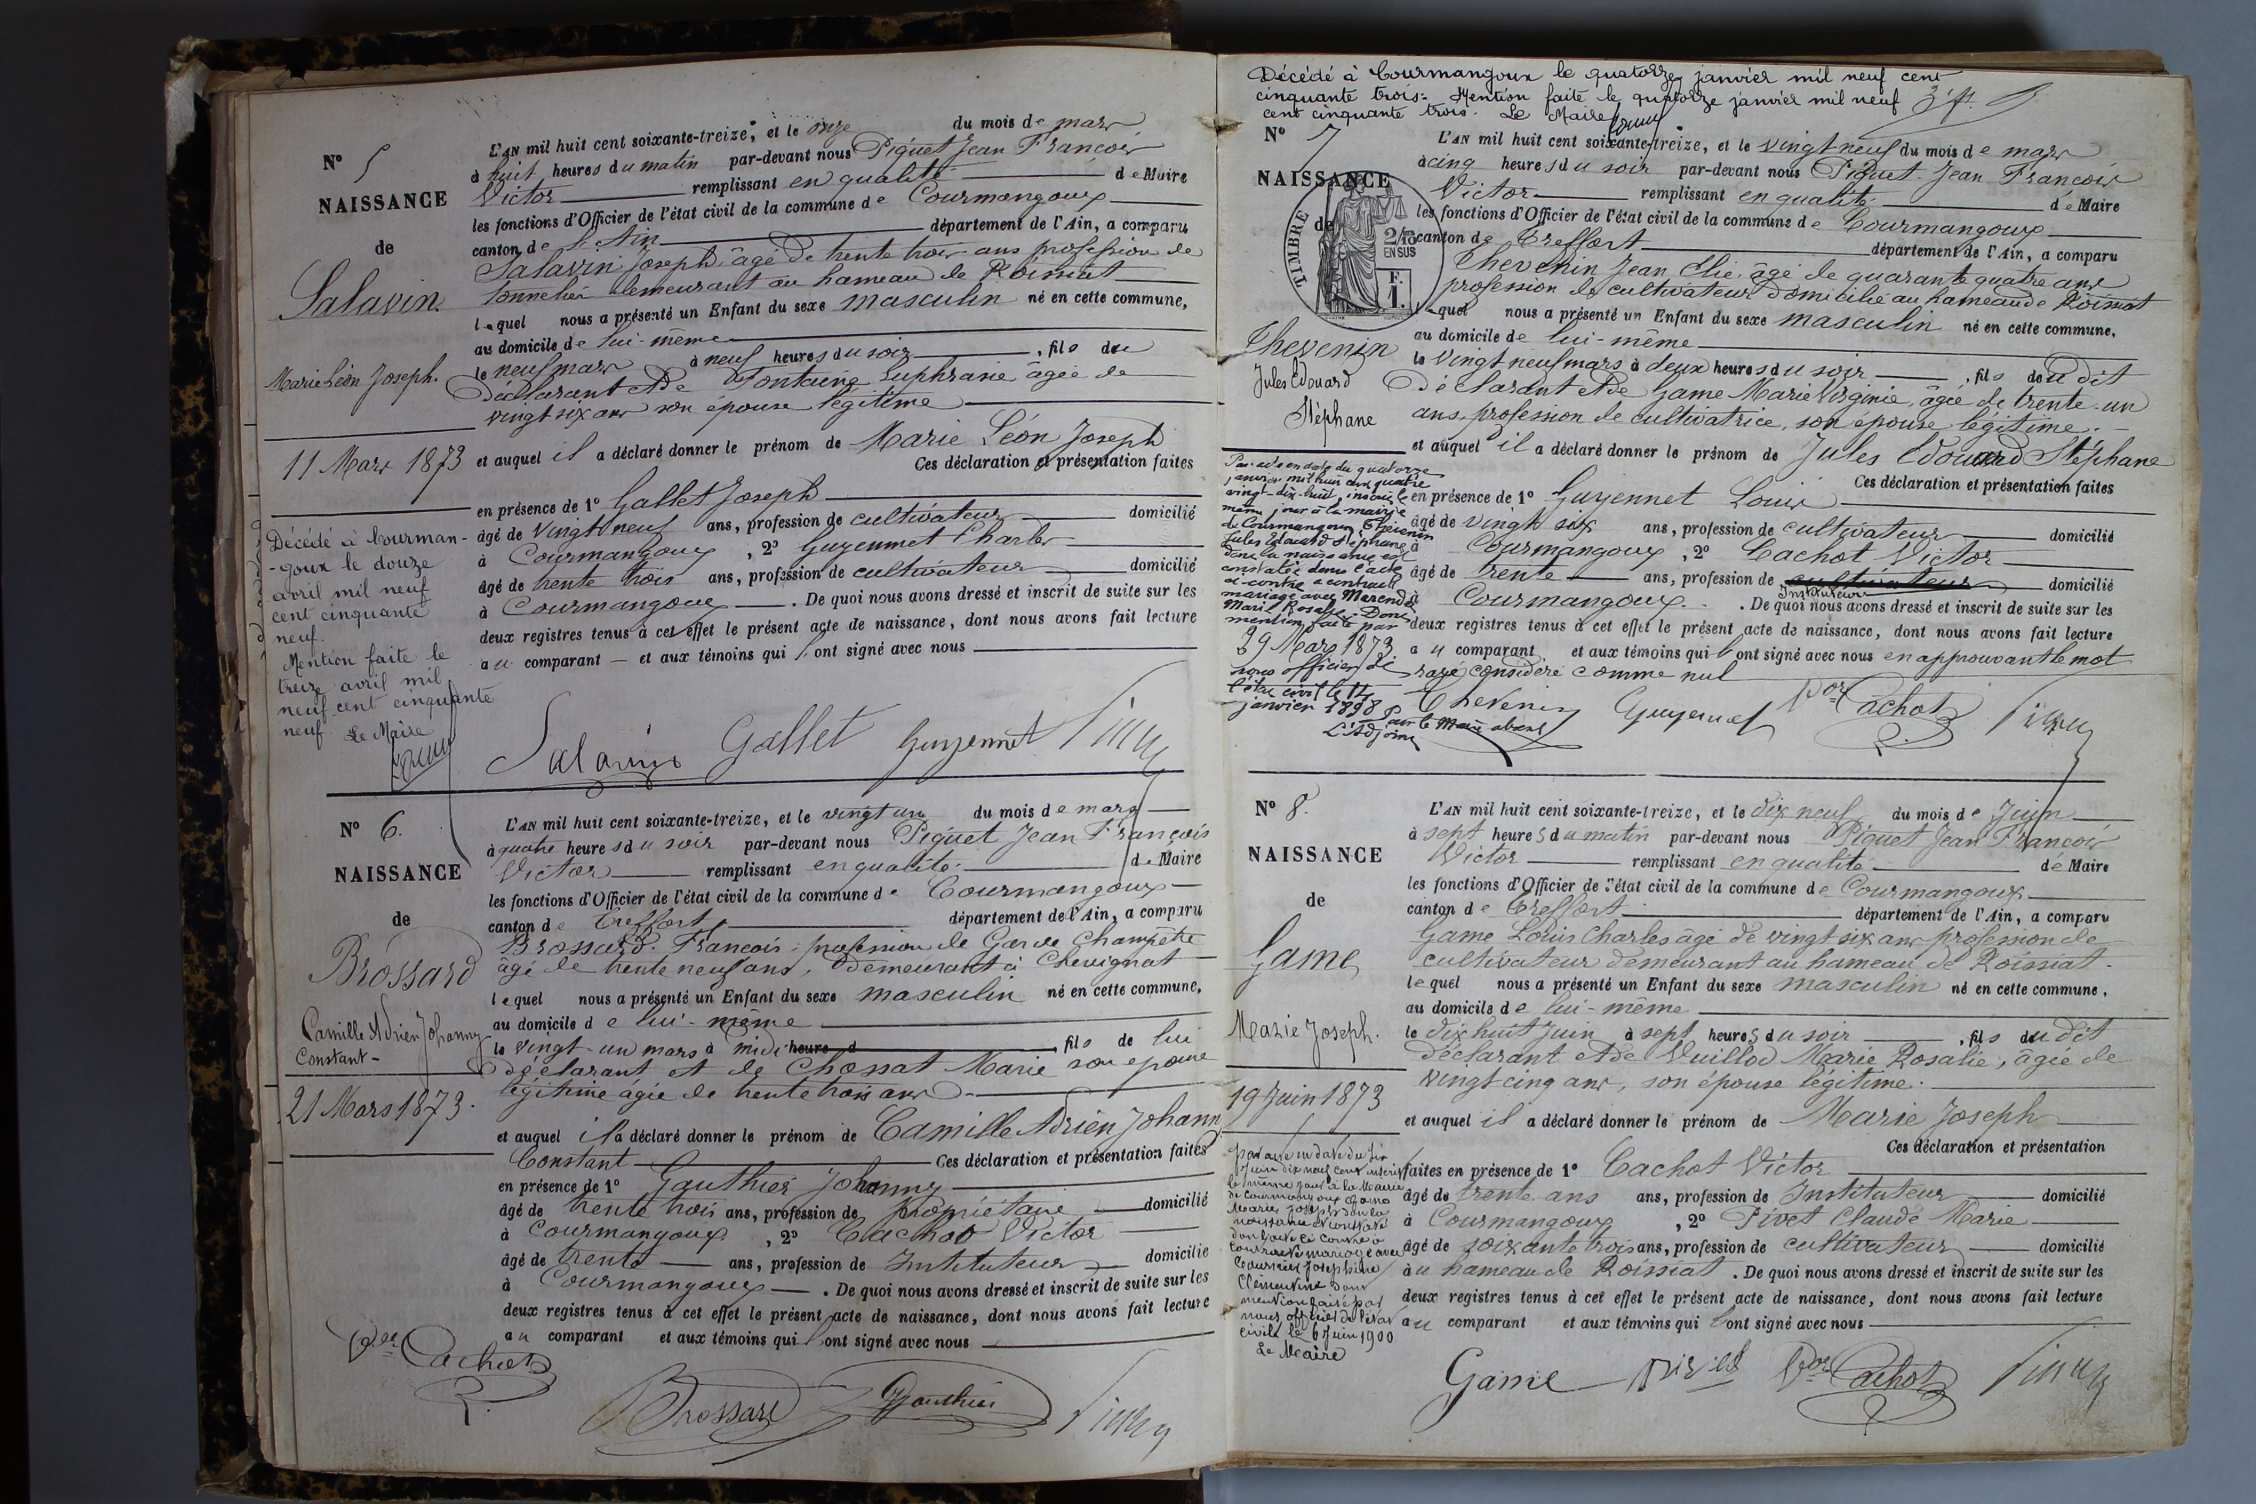 N° 5
NAISSANCE
de
Salavin
Marie Léon Joseph.
11 Mars 1873
Décédé à Courman-
-goux le douze
avril mil neuf
cent cinquante
neuf.
Mention faite le
treize avril mil
neuf cent cinquante
neuf. Le Maire
L'AN mil huit cent soixante-treize, et le onze du mois de mars
à huit heures du matin par-devant nous Piquet Jean François
Victor remplissant en qualité de Maire
les fonctions d'Officier de l'état civil de la commune de Courmangoux
canton de L'Ain département de l'Ain, a comparu
Salavin Joseph âgé de trente trois ans profession de
tonnelier demeurant au hameau de Roissiat
lequel nous a présenté un Enfant du sexe masculin né en cette commune,
au domicile de lui-même
le neuf mars à neuf heures du soir, fils du
Déclarant et de Fontaine Euphrasie âgée de
vingt six ans son épouse légitime
et auquel il a déclaré donner le prénom de Marie Léon Joseph
Ces déclaration et présentation faites
en présence de 1° Gallet Joseph
âgé de vingt neuf ans, profession de cultivateur domicilié
à Courmangoux, 2° Guyennet Charles
âgé de trente trois ans, profession de cultivateur domicilié
à Courmangoux. De quoi nous avons dressé et inscrit de suite sur les
deux registres tenus à cet effet le présent acte de naissance, dont nous avons fait lecture
au comparant et aux témoins qui l'ont signé avec nous
Salavin Gallet Guyennet Piquet
N° 6.
NAISSANCE
de
Brossard
Camille Adrien Johanny
Constant
21 Mars 1873.
L'AN mil huit cent soixante-treize, et le vingt un du mois de mars
à quatre heures du soir par-devant nous Piquet Jean François
Victor remplissant en qualité de Maire
les fonctions d'Officier de l'état civil de la commune de Courmangoux
canton de Treffort département de l'Ain, a comparu
Brossard François profession de Garde Champêtre
âgé de trente neuf ans, Demeurant à Chevignat
lequel nous a présenté un Enfant du sexe masculin né en cette commune,
au domicile de lui-même
le vingt-un mars à midi heure d, fils de lui
déclarant et de Chossat Marie son épouse
légitime âgée de trente trois ans
et auquel il a déclaré donner le prénom de Camille Adrien Johanny
Constant Ces déclaration et présentation faites
en présence de 1° Gauthier Johanny
âgé de trente trois ans, profession de propriétaire domicilié
à Courmangoux, 2° Cachot Victor
âgé de trente ans, profession de Instituteur domicilié
à Courmangoux. De quoi nous avons dressé et inscrit de suite sur les
deux registres tenus à cet effet le présent acte de naissance, dont nous avons fait lecture
au comparant et aux témoins qui l'ont signé avec nous
Vor Cachot
Brossard Gauthier Piquet
Décédé à Courmangoux le quatorze janvier mil neuf cent
cinquante trois. Mention faite le quatorze janvier mil neuf
cent cinquante trois. Le Maire
N° 7
NAISSANCE
de
TIMBRE
2/10
EN SUS
F.
1.
Thevenin
Jules Edouard
Stéphane
Par acte en date du quatorze
janvier mil huit cent quatre
vingt-dix-huit, inscrit le
même jour à la mairie
de Courmangoux, Thévenin
Jules Edouard Stéphane
dont la naissance est
constatée dans l'acte
ci-contre a contracté
mariage avec Marend
Marie Rosalie. Dont
mention faite par
29 Mars 1873.
nous officier de
l'état civil le 14
janvier 1898
Pour le Maire absent
L'Adjoint
L'AN mil huit cent soixante-treize, et le vingt neuf du mois de mars
à cinq heures du soir par-devant nous Piquet Jean François
Victor remplissant en qualité de Maire
les fonctions d'Officier de l'état civil de la commune de Courmangoux
canton de Treffort département de l'Ain, a comparu
Thevenin Jean Elie âgé de quarante quatre ans
profession de cultivateur domicilié au hameau de Roissiat
lequel nous a présenté un Enfant du sexe masculin né en cette commune,
au domicile de lui-même
le vingt neuf mars à deux heures du soir, fils du dit
déclarant et de Game Marie Virginie, âgée de trente-un
ans, profession de cultivatrice, son épouse légitime.
et auquel il a déclaré donner le prénom de Jules Edouard Stéphane
Ces déclaration et présentation faites
en présence de 1° Guyennet Louis
âgé de vingt six ans, profession de cultivateur domicilié
à Courmangoux, 2° Cachot Victor
âgé de trente ans, profession de cultivateur domicilié
Instituteur
à Courmangoux. De quoi nous avons dressé et inscrit de suite sur les
deux registres tenus à cet effet le présent acte de naissance, dont nous avons fait lecture
au comparant et aux témoins qui l'ont signé avec nous en approuvant le mot
rayé considéré comme nul
Thevenin Guyennet Vor Cachot Piquet
N° 8.
NAISSANCE
de
Game
Marie Joseph.
19 Juin 1873
par acte en date du six
Juin dix neuf cent inscrit
le même jour à la Mairie
de Courmangoux Game
Marie Joseph dont la
naissance est constatée
dans l'acte ci contre a
contracté mariage avec
Josephine
Clémentine Dont
mention faite par
nous officier de l'état
civil le 6 Juin 1900
Le Maire
L'AN mil huit cent soixante-treize, et le dix neuf du mois de Juin
à sept heures du matin par-devant nous Piquet Jean François
Victor remplissant en qualité de Maire
les fonctions d'Officier de l'état civil de la commune de Courmangoux
canton de Treffort département de l'Ain, a comparu
Game Louis Charles âgé de vingt six ans profession de
cultivateur demeurant au hameau de Roissiat.
lequel nous a présenté un Enfant du sexe masculin né en cette commune,
au domicile de lui-même
le dix huit Juin à sept heures du soir, fils du dit
déclarant et de Vuillod Marie Rosalie, âgée de
vingt cinq ans, son épouse légitime.
et auquel il a déclaré donner le prénom de Marie Joseph
Ces déclaration et présentation
faites en présence de 1° Cachot Victor
âgé de trente ans ans, profession de Instituteur domicilié
à Courmangoux, 2° Pivet Claude Marie
âgé de soixante trois ans, profession de cultivateur domicilié
au hameau de Roissiat. De quoi nous avons dressé et inscrit de suite sur les
deux registres tenus à cet effet le présent acte de naissance, dont nous avons fait lecture
au comparant et aux témoins qui l'ont signé avec nous
Game Pivet Vor Cachot Piquet